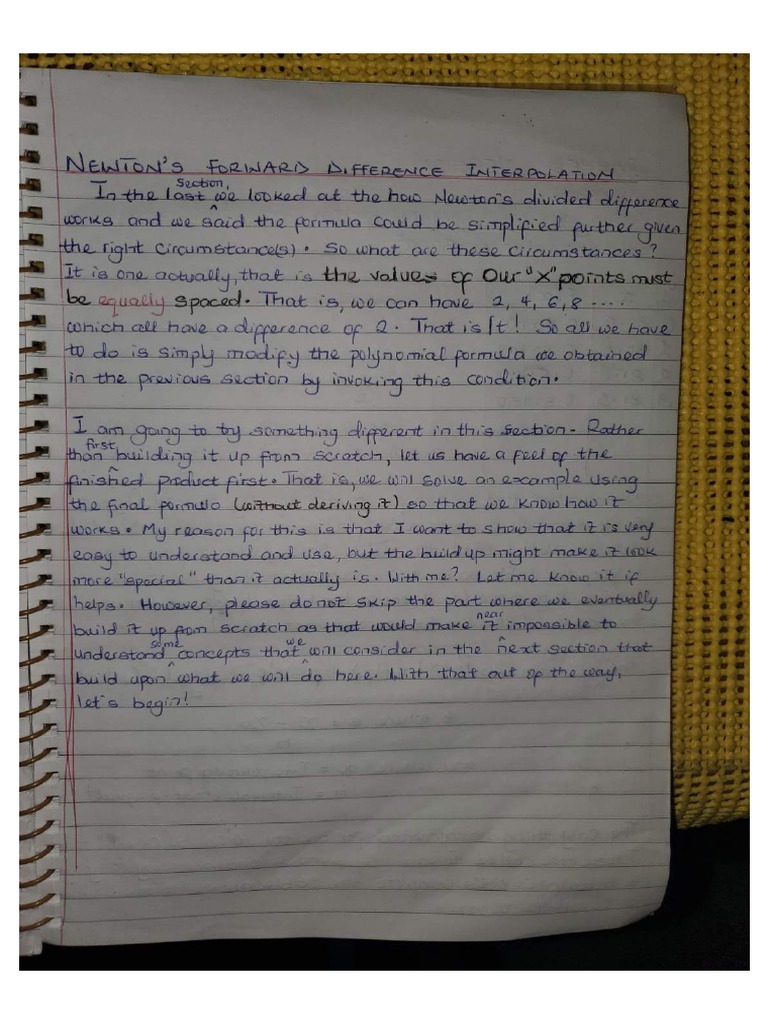 NEWTON'S FORWARD DIFFERENCE INTERPOLATION
In the last section, we looked at the how Newton's divided difference
works and we said the formula could be simplified further given
the right circumstance(s). So what are these circumstances?
It is one actually, that is the values of our "X" points must
be equally spaced. That is, we can have 2, 4, 6, 8 ....
which all have a difference of 2. That is It! So all we have
to do is simply modify the polynomial formula we obtained
in the previous section by invoking this condition.
I am going to try something different in this section. Rather
than first, building it up from scratch, let us have a feel of the
finished product first. That is, we will solve an example using
the final formula (without deriving it) so that we know how it
works. My reason for this is that I want to show that it is very
easy to understand and use, but the build up might make it look
more "special" than it actually is. With me? Let me know it if
helps. However, please do not skip the part where we eventually
build it up from scratch as that would make it near impossible to
understand some concepts that we will consider in the next section that
build upon what we will do here. With that out of the way,
let's begin!